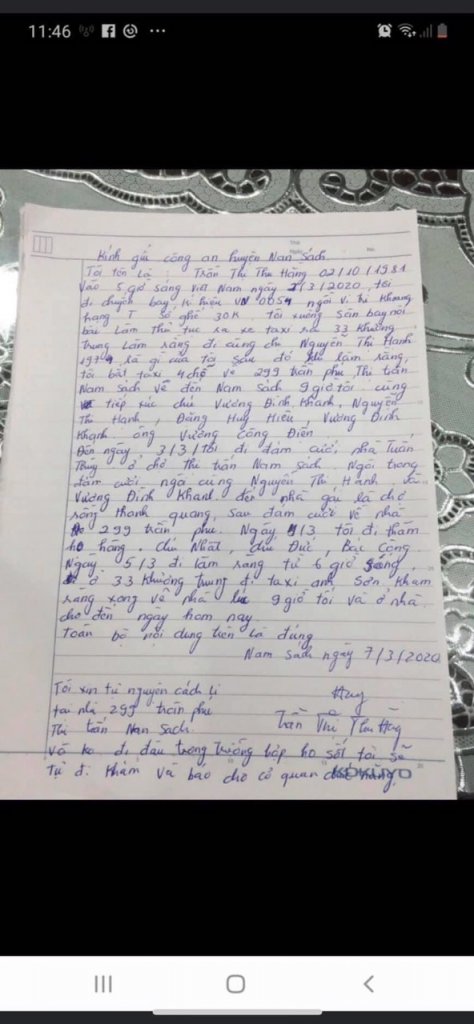 11:46
Thứ
Ngày
No.
Kính gửi công an huyện Nam Sách.
Tôi tên là : Trần Thị Thu Hằng 02/10/1981
Vào 5 giờ sáng Việt Nam ngày 2/3/2020, tôi
đi chuyến bay kí hiệu VN 0054 ngồi vị trí khoang
hạng T số ghế 30K tôi xuống sân bay nội
bài làm thủ tục ra xe taxi ra 33 Khương
Trung làm răng đi cùng chị Nguyễn Thị Hạnh
1974 là gì của tôi sau đó làm răng,
tôi bắt taxi 4 chỗ về 299 trần phú Thị trấn
Nam Sách về đến Nam Sách 9 giờ tối cùng
tiếp xúc chú Vương Đình Khanh, Nguyễn
Thị Hạnh, Đặng Huy Hiệu, Vương Đình
Khanh, ông Vương Công Điền
Đến ngày 3/3 tôi đi đám cưới nhà Tuấn
Thủy ở chợ Thị trấn Nam Sách Ngồi trong
đám cưới ngồi cùng Nguyễn Thị Hạnh và
Vương Đình Khanh đến nhà gái là chợ
rồng thanh quang, sau đám cưới về nhà
299 trần phú. Ngày 4/3 tôi đi thăm
họ hàng. chú Nhất, chú Đức, Bác Cộng
Ngày 5/3 đi làm răng từ 6 giờ sáng,
ở 33 Khương trung đi taxi anh Sơn. Khám
răng xong về nhà lúc 9 giờ tối và ở nhà
cho đến ngày hôm nay
Toàn bộ nội dung trên là đúng
Nam Sách ngày 7/3/2020
Tôi xin tự nguyện cách li
tại nhà 299 trần phú
Thị trấn Nam Sách
Trần Thị Thu Hằng
và ko đi đâu trong trường hợp ho sốt tôi sẽ
tự đi khám và báo cho cơ quan chức năng.
KOKUYO